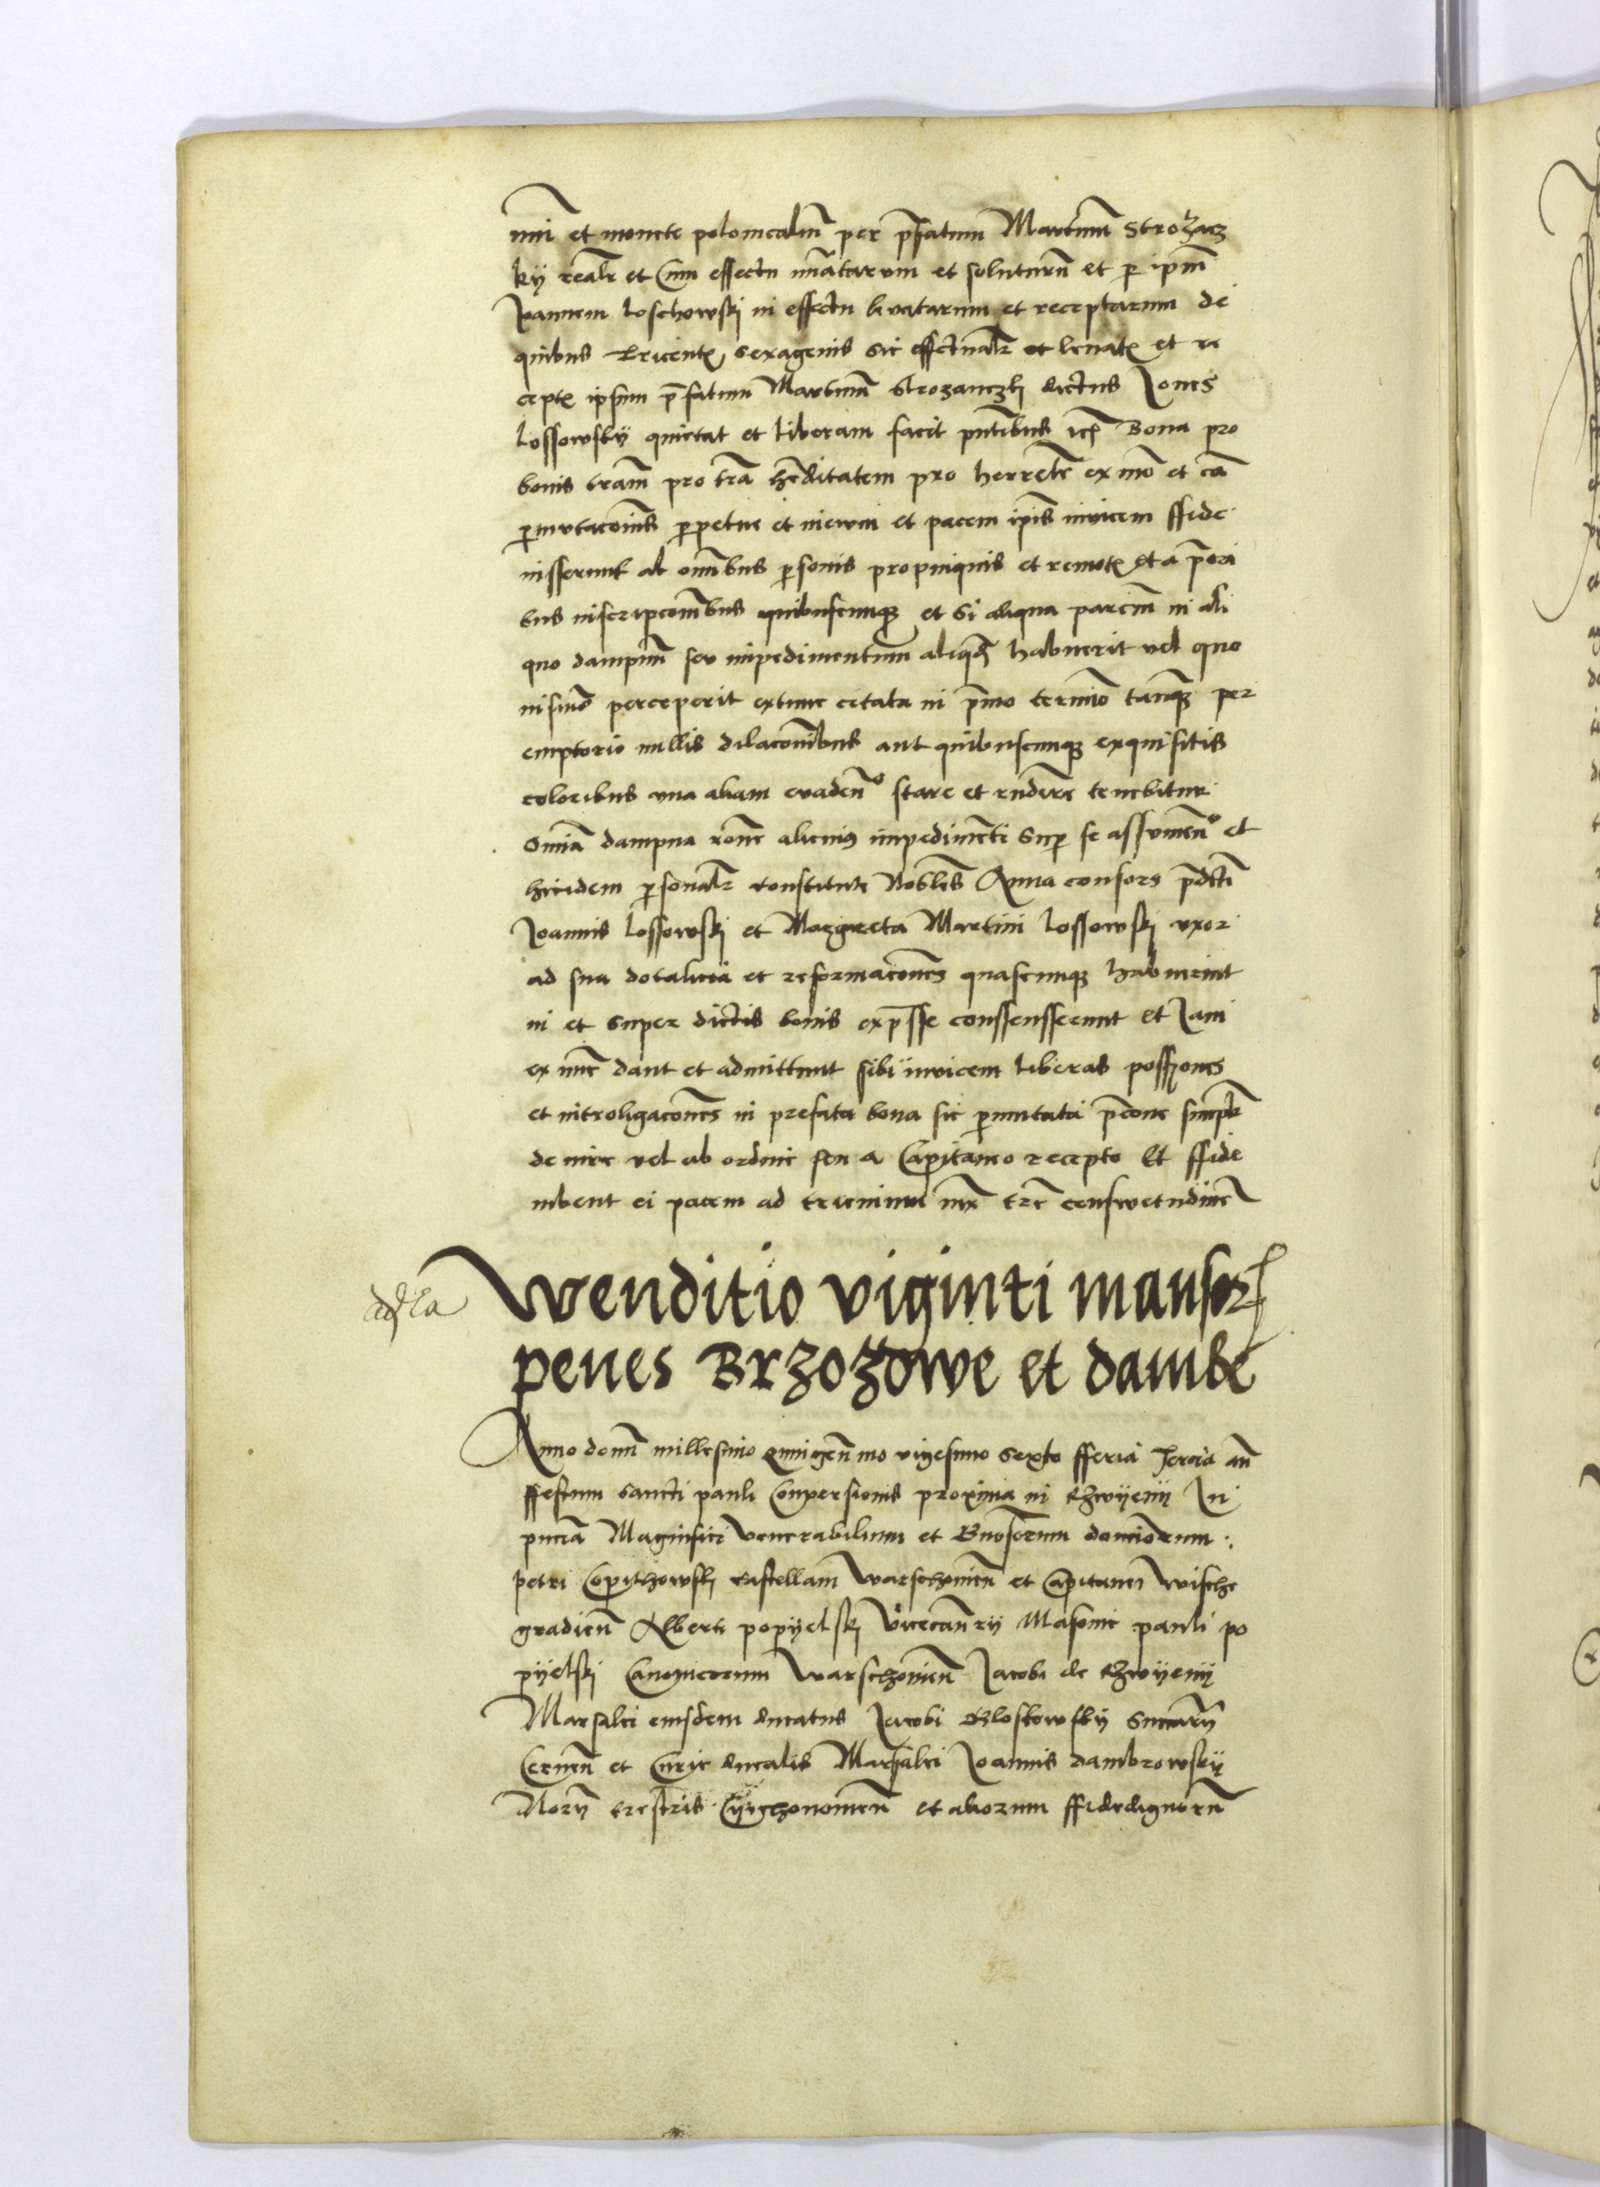 et monete polonicalium per prefatum Martinum Strozacz
ky realr et Cum effectu nuatarum et solutarum et per ipsum
Joannem loschowski in effectu levatarum et receptarum de
quibus tricentis sexagenis sic effectualr et levatis et re
ceptis ipsum prefatum Martinum Strozanczki dictus Joannes
lossowsky quietat et liberum facit pntibus Bona pro
bonis terram pro terra hereditatem pro hereditate ex more et causa
permutaconis perpetue et et pacem ipis invicem ffide
iusserunt ab omnibus personis propinquis et remotis et a priori
bus inscripconibus quibuscunque et si aliqua parcium in ali
quo dampnum seu impedimentum aliquod habuerit vel quo
perceperit extunc citata in primo termino tanquam per
emptorio nullis dilaconibus aut quibuscunque exquisitis
coloribus una aliam evadendo stare et rndere tenebitur
omnia dampna rone alicuius impedimenti super se assumendo et
ibidem personalr constitute Nobiles Anna consors predicti
Joannis lossowski et Margareta Martini lossowski uxor
ad sua dotalicia et reformacones quascunque habuerint
in et super dictis bonis expresse conssensserunt et Jam
ex nunc dant et admittunt sibi invicem liberas possiones
et introligacones in prefata bona sic permutata
de iure vel ab ordine seu a Capitaneo recepto et ffide
iubent ei pacem ad triennium iux tre conswetudinem
adla
Wenditio viginti mansorum
penes Brzozowe et dambe
Anno domini millesimo quingentesimo vigesimo sexto fferia Tercia ante
ffestum sancti pauli Conversionis proxima in In
pncia Magnifici Venerabilium et Generosorum dominorum
petri Copithowski castellani Warschoviensis et Capitanei Wische
gradiensis Alberti popyelski Vicecancellarii Masovie pauli po
pyelski Canonicorum Warschoviensis Jacobi de
Marsalci eiusdem ducatus Jacobi Gloskowsky
Cernensis et Curie ducalis Marsalci Joannis dambrowsky
Notarii trestris Cyechonoviensis et aliorum ffidedignorum